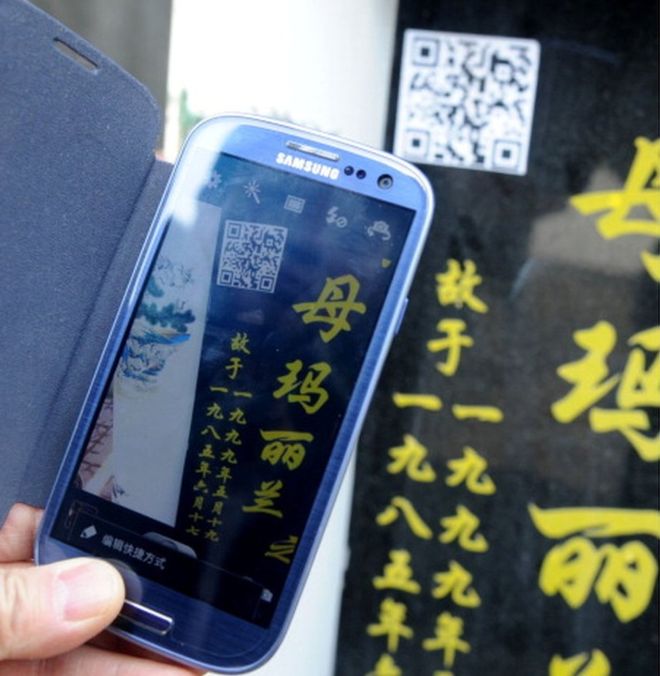 SAMSUNG
母玛丽兰之
故于一九九九年五月十九
一九八五年六月十七
编辑快捷方式
母玛丽
故于一九九九年
一九八五年六